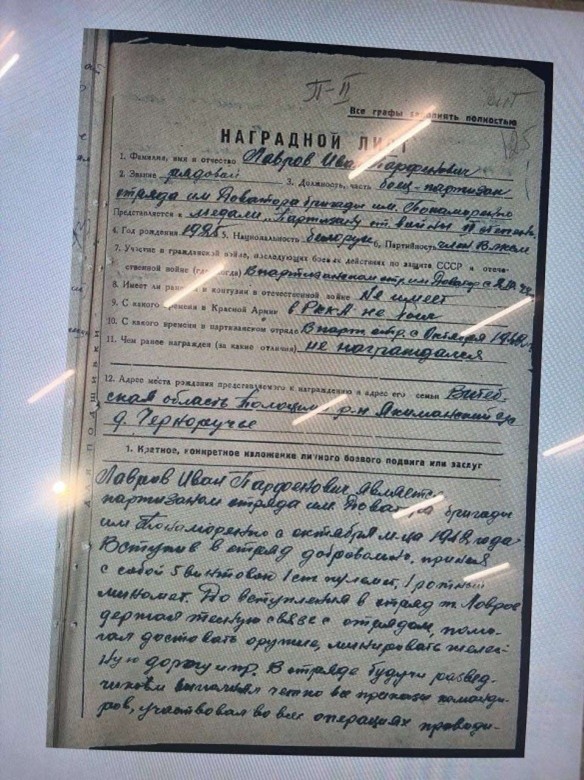 П-II
Все графы заполнять полностью
НАГРАДНОЙ ЛИСТ
1. Фамилия, имя и отчество Лавров Иван Парфенович
2. Звание рядовой 3. Должность, часть боец-партизан
отряда им. бригады им. Пономаренко
Представляется к медали „Партизану от. войны II степени"
4. Год рождения 1925 5. Национальность белорус 6. Партийность член влксм
7. Участие в гражданской войне, последующих боевых действиях по защите СССР и отече-
ственной войне (где, когда) В партизанском отр. им. с
8. Имеет ли ранения и контузии в отечественной войне Не имеет
9. С какого времени в Красной Армии в РККА не был
10. С какого времени в партизанском отряде В парт. отр. с Октября 1942 г.
11. Чем ранее награжден (за какие отличия) не награждался
12. Адрес места рождения представляемого к награждению и адрес его семьи Витеб-
ская область Полоцкий р-н с/с
д. Черноручье
ДЛЯ ПОДШИВКИ
1. Краткое, конкретное изложение личного боевого подвига или заслуг
Лавров Иван Парфенович является
партизаном отряда им. бригады
им Пономаренко с октября м-ца 1942 года
Вступив в отряд добровольно, принёс
с собой 5 винтовок 1 ст. пулемет, 1 ротный
миномет. До вступления в отряд т. Лавров
держал тесную связь с отрядом, помо-
гал доставать оружие, минировать желез-
ную дорогу и пр. В отряде будучи развед-
чиком выполнял четко все приказы команди-
ров, участвовал во всех операциях проводи-